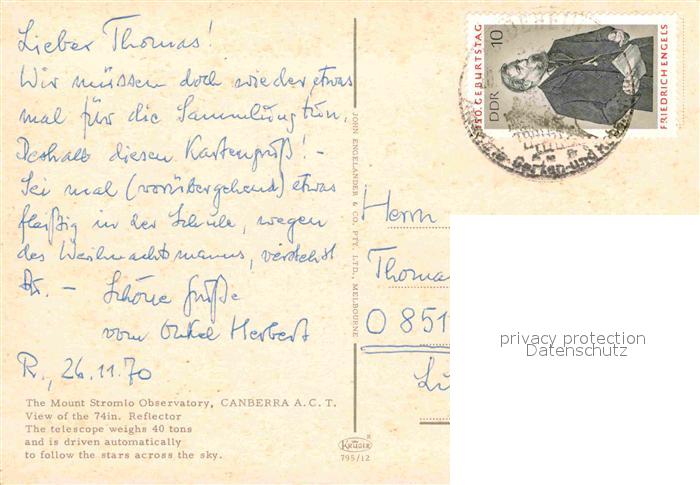 Lieber Thomas!
Wir müssen doch wieder etwas
mal für die Sammlung tun.
Deshalb diesen Kartengruß! –
Sei mal (vorübergehend) etwas
fleißig in der Schule, wegen
des Weihnachtsmanns, verstehst
Du. – Schöne Grüße
vom Onkel Herbert
R., 26.11.70
The Mount Stromlo Observatory, CANBERRA A.C.T.
View of the 74in. Reflector
The telescope weighs 40 tons
and is driven automatically
to follow the stars across the sky.
JOHN ENGELANDER & CO. PTY. LTD., MELBOURNE
KRÜGER
795/12
150. GEBURTSTAG
DDR 10
FRIEDRICH ENGELS
Garten- und
Herrn
Thomas
O 851
privacy protection
Datenschutz